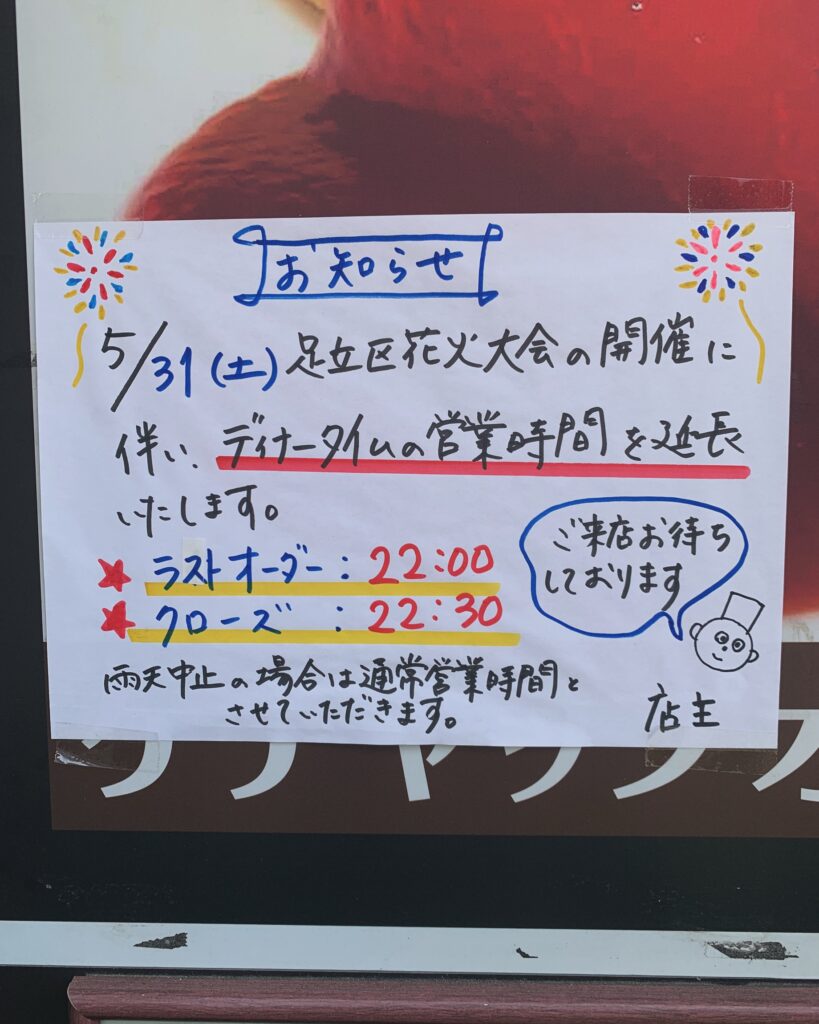 お知らせ
5/31(土)足立区花火大会の開催に
伴い、ディナータイムの営業時間を延長
いたします。
★ラストオーダー：22:00
★クローズ：22:30
ご来店お待ち
しております
雨天中止の場合は通常営業時間と
させていただきます。
店主